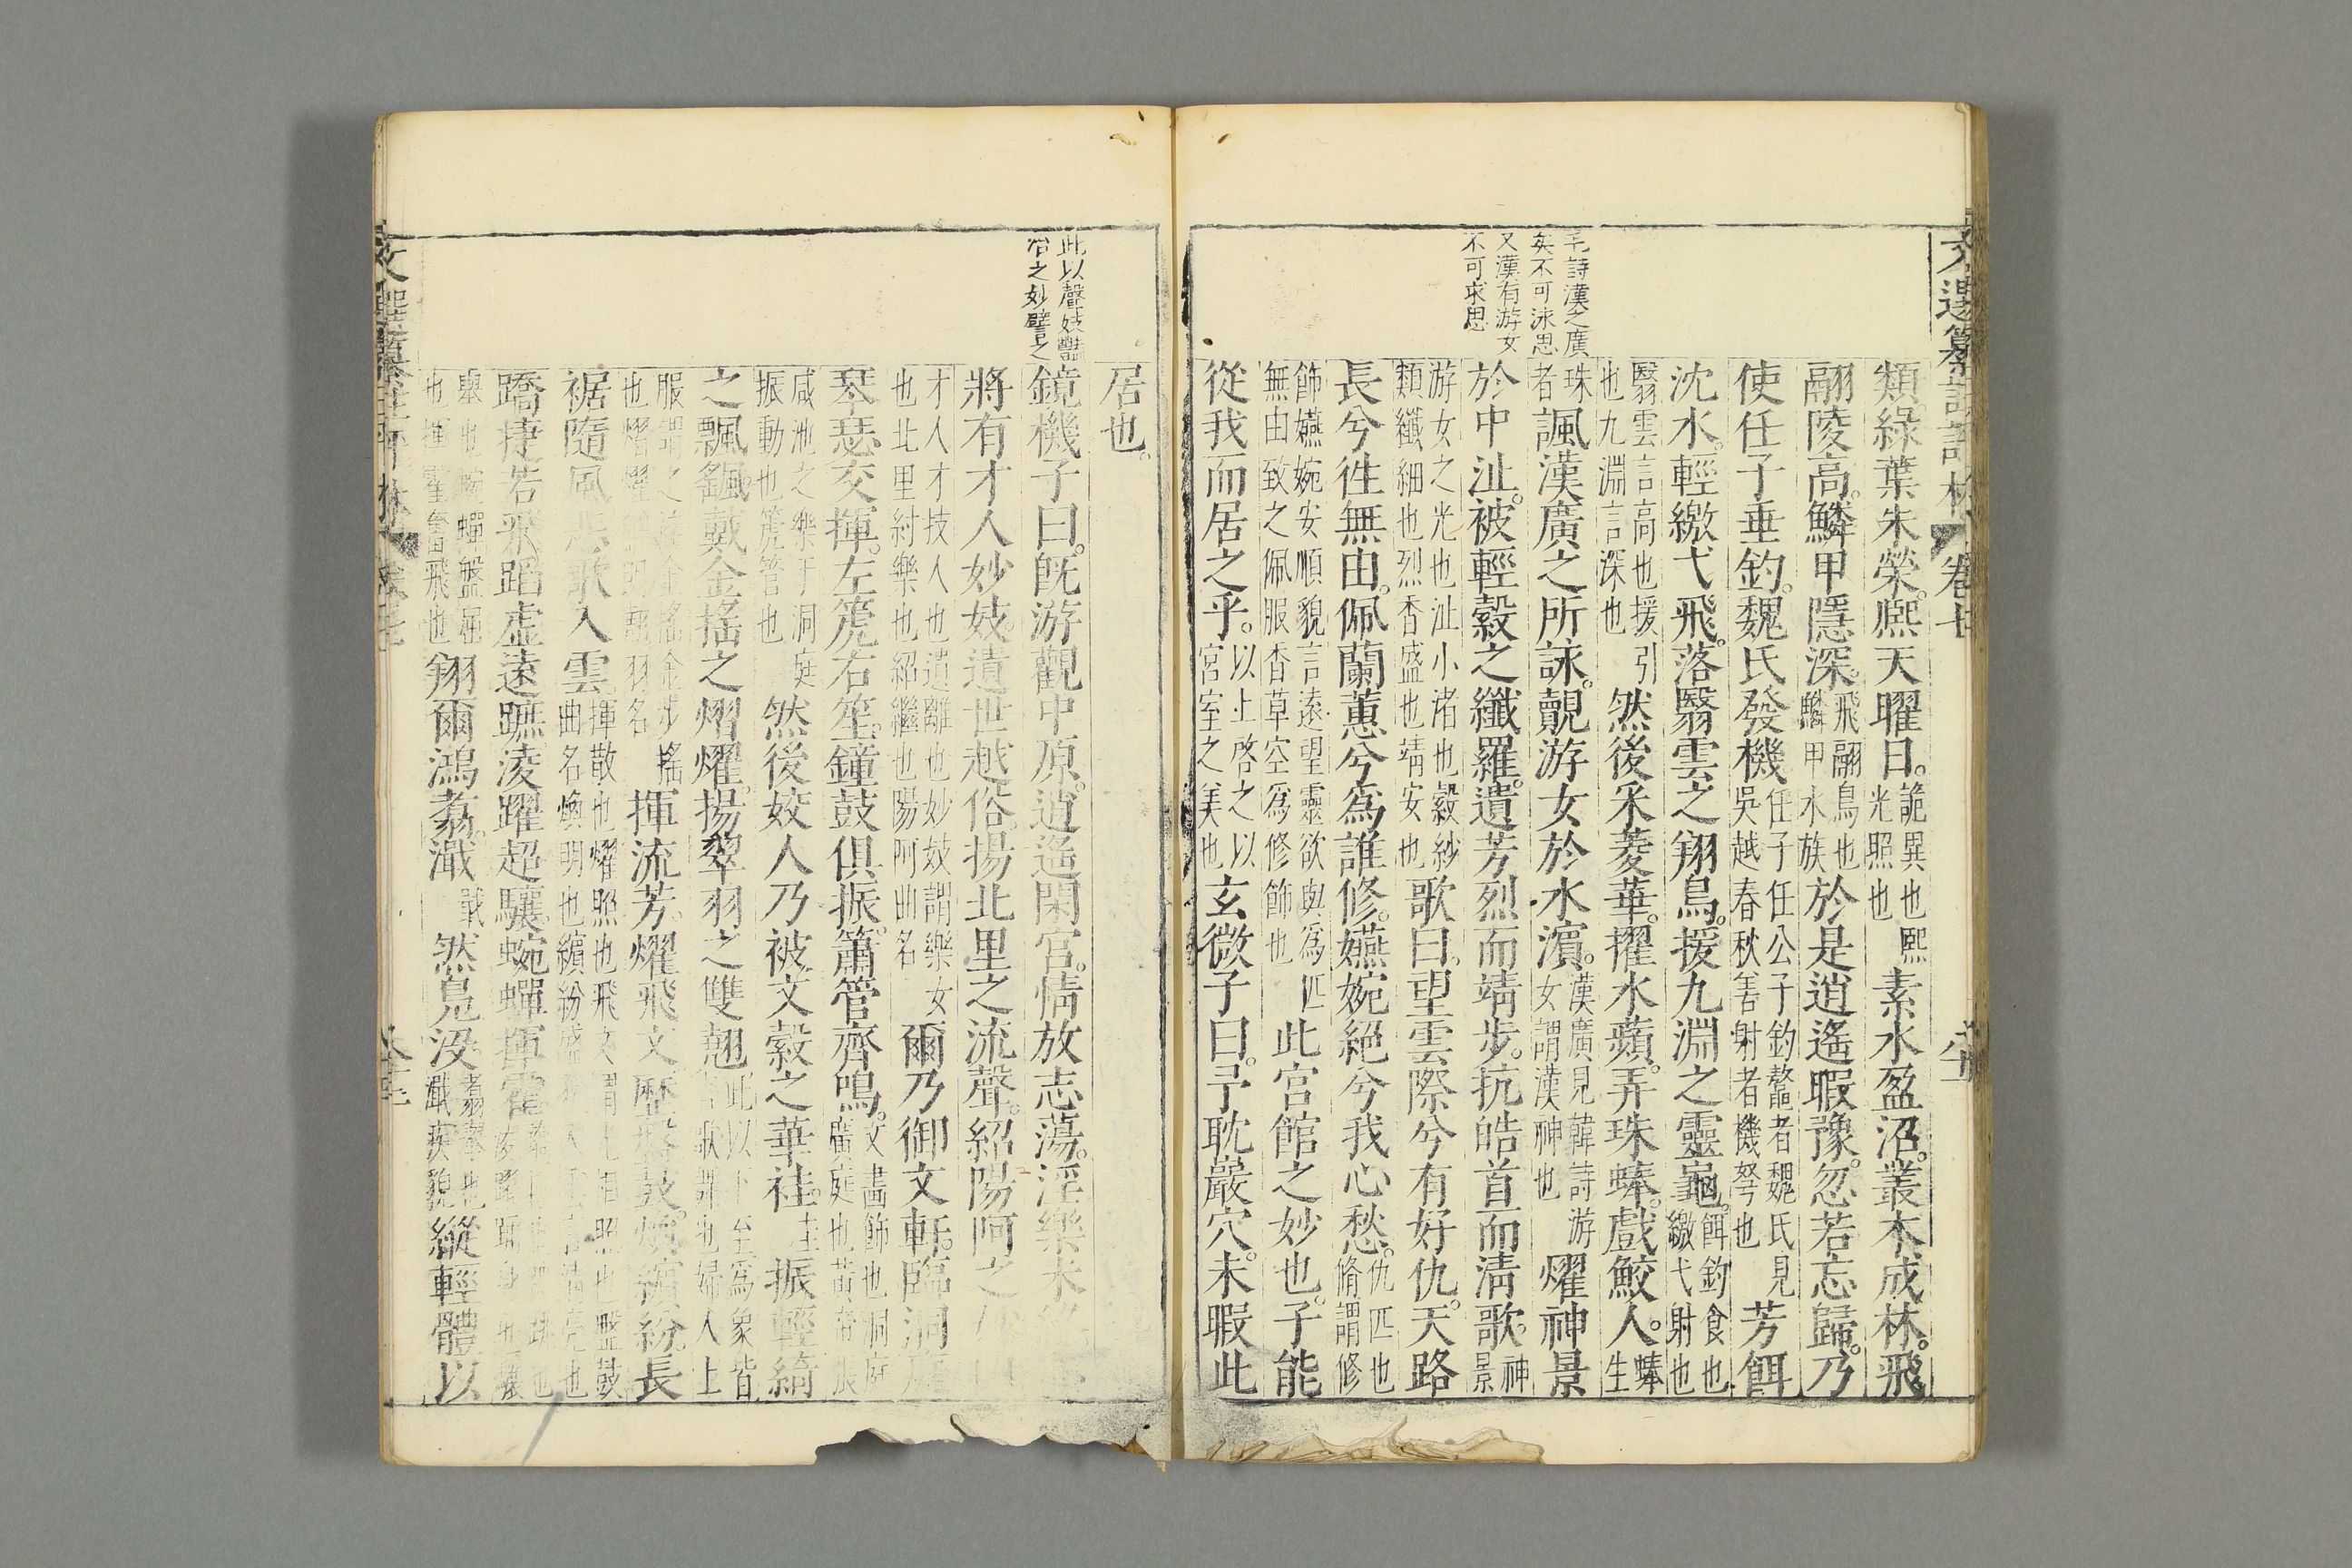 毛詩漢之廣
矣不可泳思
又漢有游女
不可求思
類。綠葉朱榮。熈天曜日。詭異也熈光照也素水盈沼。叢木成林。飛
翮陵高。鱗甲隱深。飛翮鳥也鱗甲水族於是逍遙暇豫。忽若忘歸。乃
使任子垂釣。魏氏發機任子任公子釣鼇者魏氏見吳越春秋善射者機弩也芳餌
沈水。輕繳弋飛。落翳雲之翔鳥。援九淵之靈龜。餌釣食也繳弋射也
翳雲言高也援引也九淵言深也然後采菱華。擢水蘋。弄珠蜯。戲鮫人。蜯生
珠者諷漢廣之所詠。覿游女於水濱。漢廣見韓詩游女謂漢神也燿神景
於中沚。被輕縠之纖羅。遺芳烈而靖步。抗皓首而清歌。神景
游女之光也沚小渚也縠紗類纖細也烈香盛也靖安也歌曰。望雲際兮有好仇。天路
長兮徃無由。佩蘭蕙兮為誰修。嬿婉絕兮我心愁。仇匹也脩謂修
飾嬿婉安順貌言遠望靈欲與為匹無由致之佩服香草空為修飾也此宮館之妙也。子能
從我而居之乎。以上啓之以宮室之美也玄微子曰。予耽巖穴。未暇此
文選纂註評林 卷七
此以聲妓豔
冶之妙譬之
居也。
鏡機子曰。旣游觀中原。逍遙閑宮。情放志蕩。淫樂未
將有才人妙妓。遺世越俗。揚北里之流聲。紹陽阿之
才人才技人也遺離也妙妓謂樂女也北里紂樂也紹繼也陽阿曲名爾乃御文軒。臨洞
琴瑟交揮。左箎右笙。鐘鼓俱振。簫管齊鳴。文畵飾也洞庭廣庭也黃帝張
咸池之樂于洞庭振動也箎管也然後姣人乃被文縠之華袿。振輕綺
之飄颻。戴金搖之熠燿。揚翠羽之雙翹此以下至為象皆言歌舞也婦人上
服謂之袿金搖金步搖也熠燿翹羽名揮流芳。燿飛文。歷盤鼓。煥繽紛。長
裾隨風。悲歌入雲。揮散也燿照也飛文也盤鼓曲名煥明也繽紛盛也
蹻捷若飛。蹈虛遠蹠。淩躍超驤。蜿蟬揮霍
舉也蜿蟬盤屈也揮霍奮飛也翔爾鴻翥。濈濈然鳧没。翥舉也濈疾貌縱輕體以